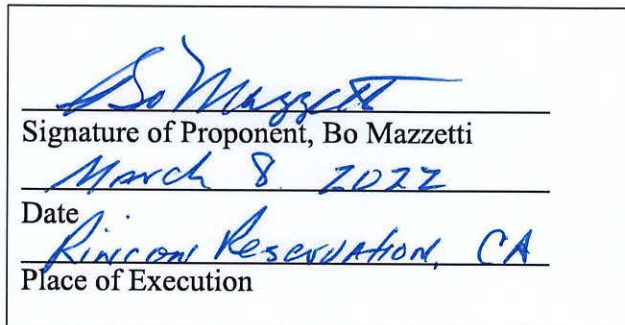 Bo Mazzetti
Signature of Proponent, Bo Mazzetti
March 8 2022
Date
Rincon Reservation, CA
Place of Execution